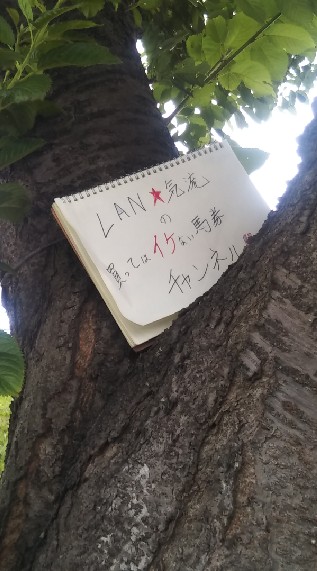 LAN★気流
の
買ってはイケない馬券
チャンネル